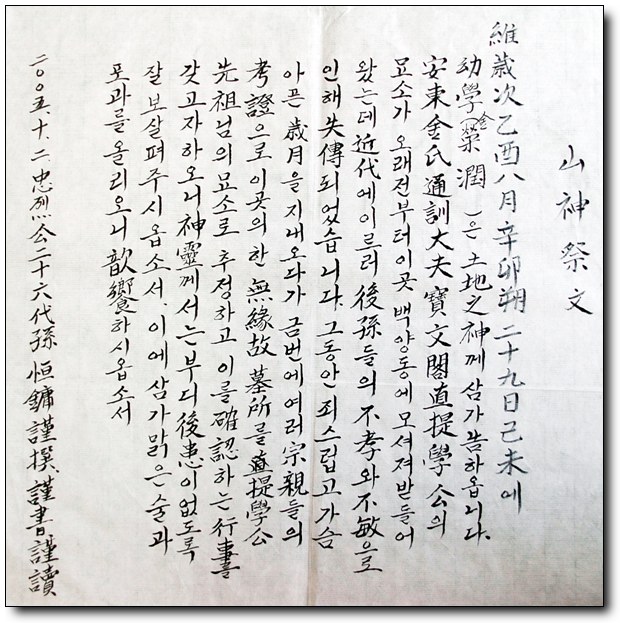 山神祭文
維歲次乙酉八月辛卯朔二十九日己未에
幼學(金榮潤)은 土地之神께 삼가 告하옵니다.
安東金氏通訓大夫寶文閣直提學公의
묘소가 오래전부터 이곳 백양동에 모셔져 받들어
왔는데 近代에 이르러 後孫들의 不孝와 不敏으로
인해 失傳되었습니다. 그동안 죄스럽고 가슴
아픈 歲月을 지내오다가 금번에 여러 宗親들의
考證으로 이곳의 한 無緣故 墓所를 直提學公
先祖님의 묘소로 추정하고 이를 確認하는 行事를
갖고자 하오니 神靈께서는 부디 後患이 없도록
잘 보살펴 주시옵소서. 이에 삼가 맑은 술과
포과를 올리오니 歆饗하시옵소서
二00五、十、二、忠烈公二十六代孫 恒鏞謹撰、謹書、謹讀